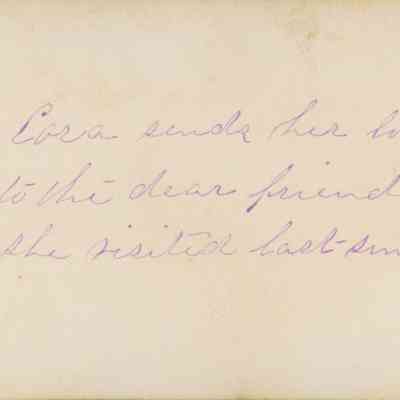 Cora sends her lo
to the dear friend
she visited last sum